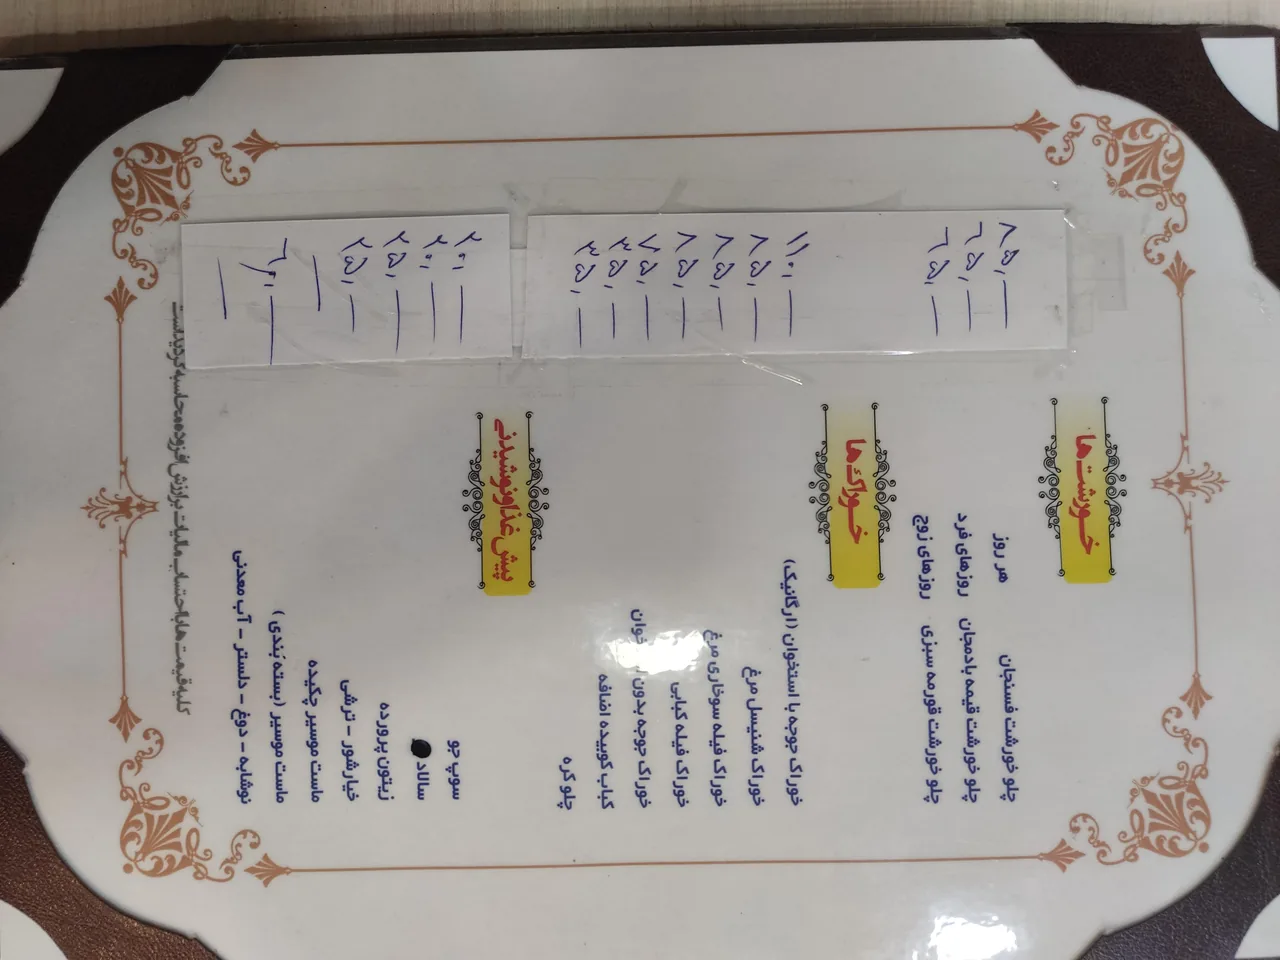 خورشت‌ها
چلو خورشت فسنجان هر روز ۷۵۰ —
چلو خورشت قیمه بادمجان روزهای فرد ۶۵۰ —
چلو خورشت قورمه سبزی روزهای زوج ۶۵۰ —
خوراک‌ها
خوراک جوجه با استخوان (ارگانیک) ۱۱۰۰ —
خوراک شنیسل مرغ ۷۵۰ —
خوراک فیله سوخاری مرغ ۷۵۰ —
خوراک فیله کبابی ۷۵۰ —
خوراک جوجه بدون
کباب کوبیده اضافه
چلو کره
پیش غذا و نوشیدنی
سوپ جو ۲۰۰ —
سالاد ۲۰۰ —
زیتون پرورده ۲۵۰ —
خیارشور - ترشی ۲۵۰ —
ماست موسیر چکیده —
ماست موسیر (بسته بندی)
نوشابه - دوغ - دلستر - آب معدنی —
کلیه قیمت ها با احتساب مالیات بر ارزش افزوده محاسبه گردیده است